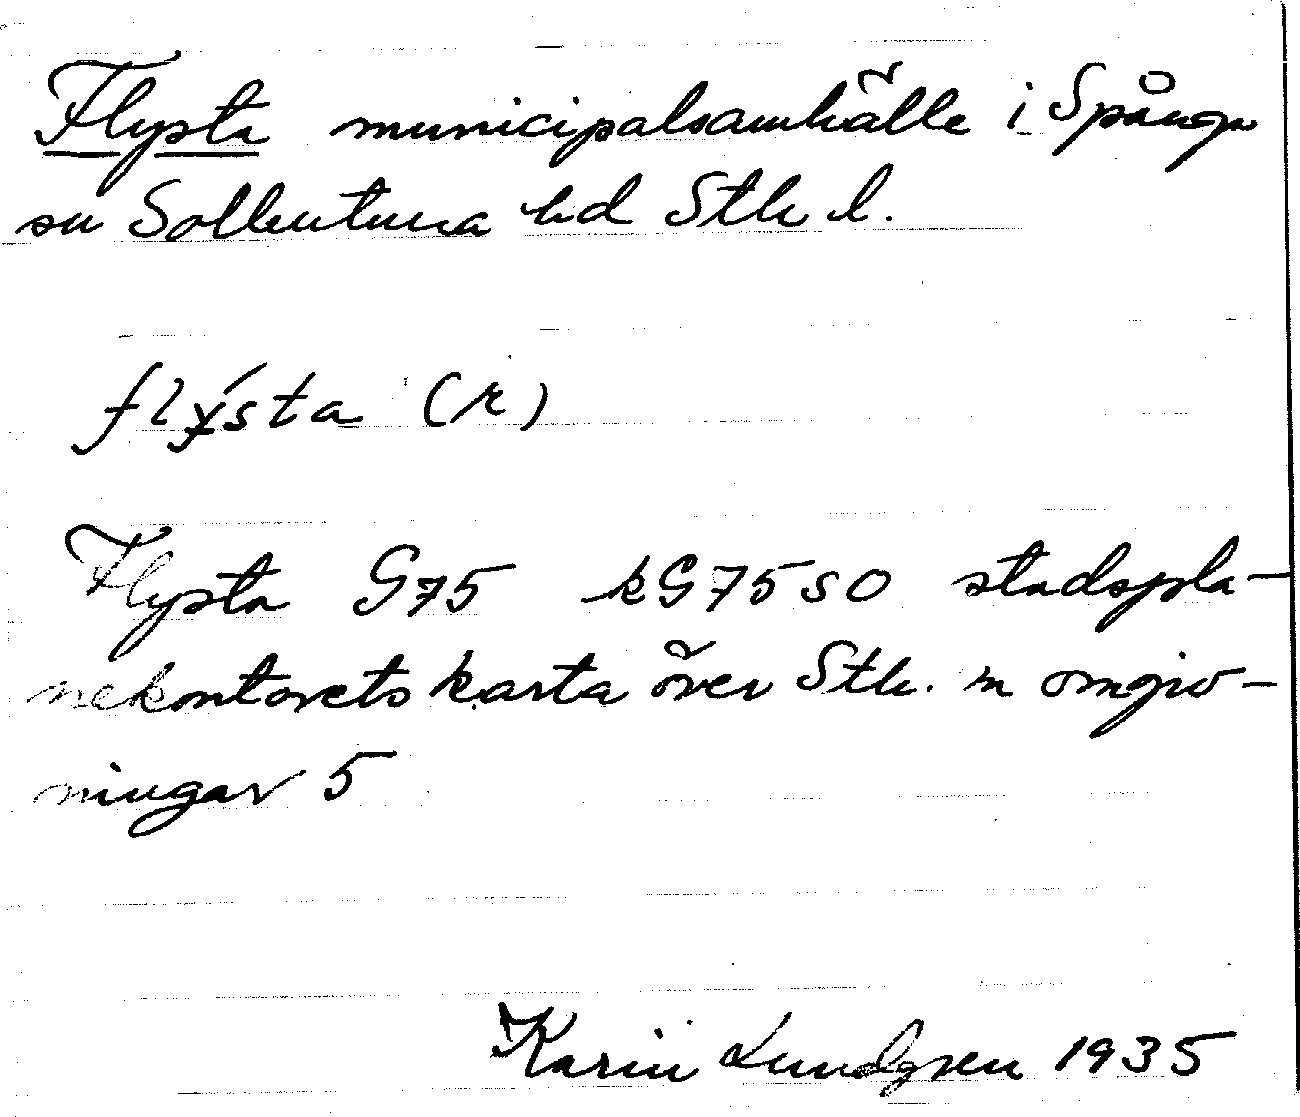 Flysta municipalsamhälle i Spånga
sn Sollentuna hd Sthlm l.
flý̱sta (r)
Flysta G75 kG75SO stadspla-
nekontorets karta över Sthlm. m omgiv-
ningar 5
Karin Lundgren 1935